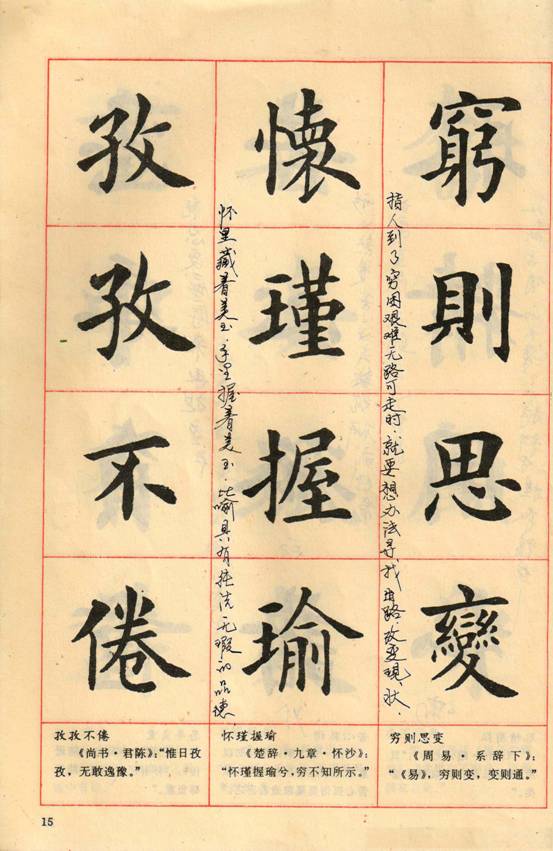 窮則思變
指人到了穷困艰难无路可走时.就要想办法寻找出路.改变现状.
懷瑾握瑜
怀里藏着美玉.手里握着美玉.比喻具有纯洁无瑕的品德
孜孜不倦
孜孜不倦
《尚书·君陈》:“惟日孜
孜,无敢逸豫。”
怀瑾握瑜
《楚辞·九章·怀沙》:
“怀瑾握瑜兮,穷不知所示。”
穷则思变
《周易·系辞下》:
“《易》,穷则变,变则通。”
15